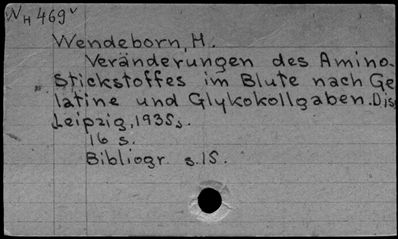 WH 469v
Wendeborn, H.
Veränderungen des Amino-
Stickstoffes im Blute nach Ge
latine und Glykokollgaben. Dis
Leipzig, 1935.
16 s.
Bibliogr. s.15.